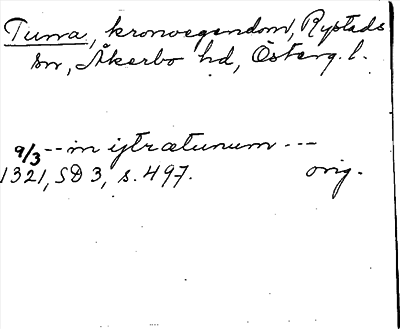 Tuna, kronoegendom, Rystads
sn, Åkerbo hd, Österg. l.
9/3 -- in ytrætunum ---
1321, SD 3, s. 497. orig.